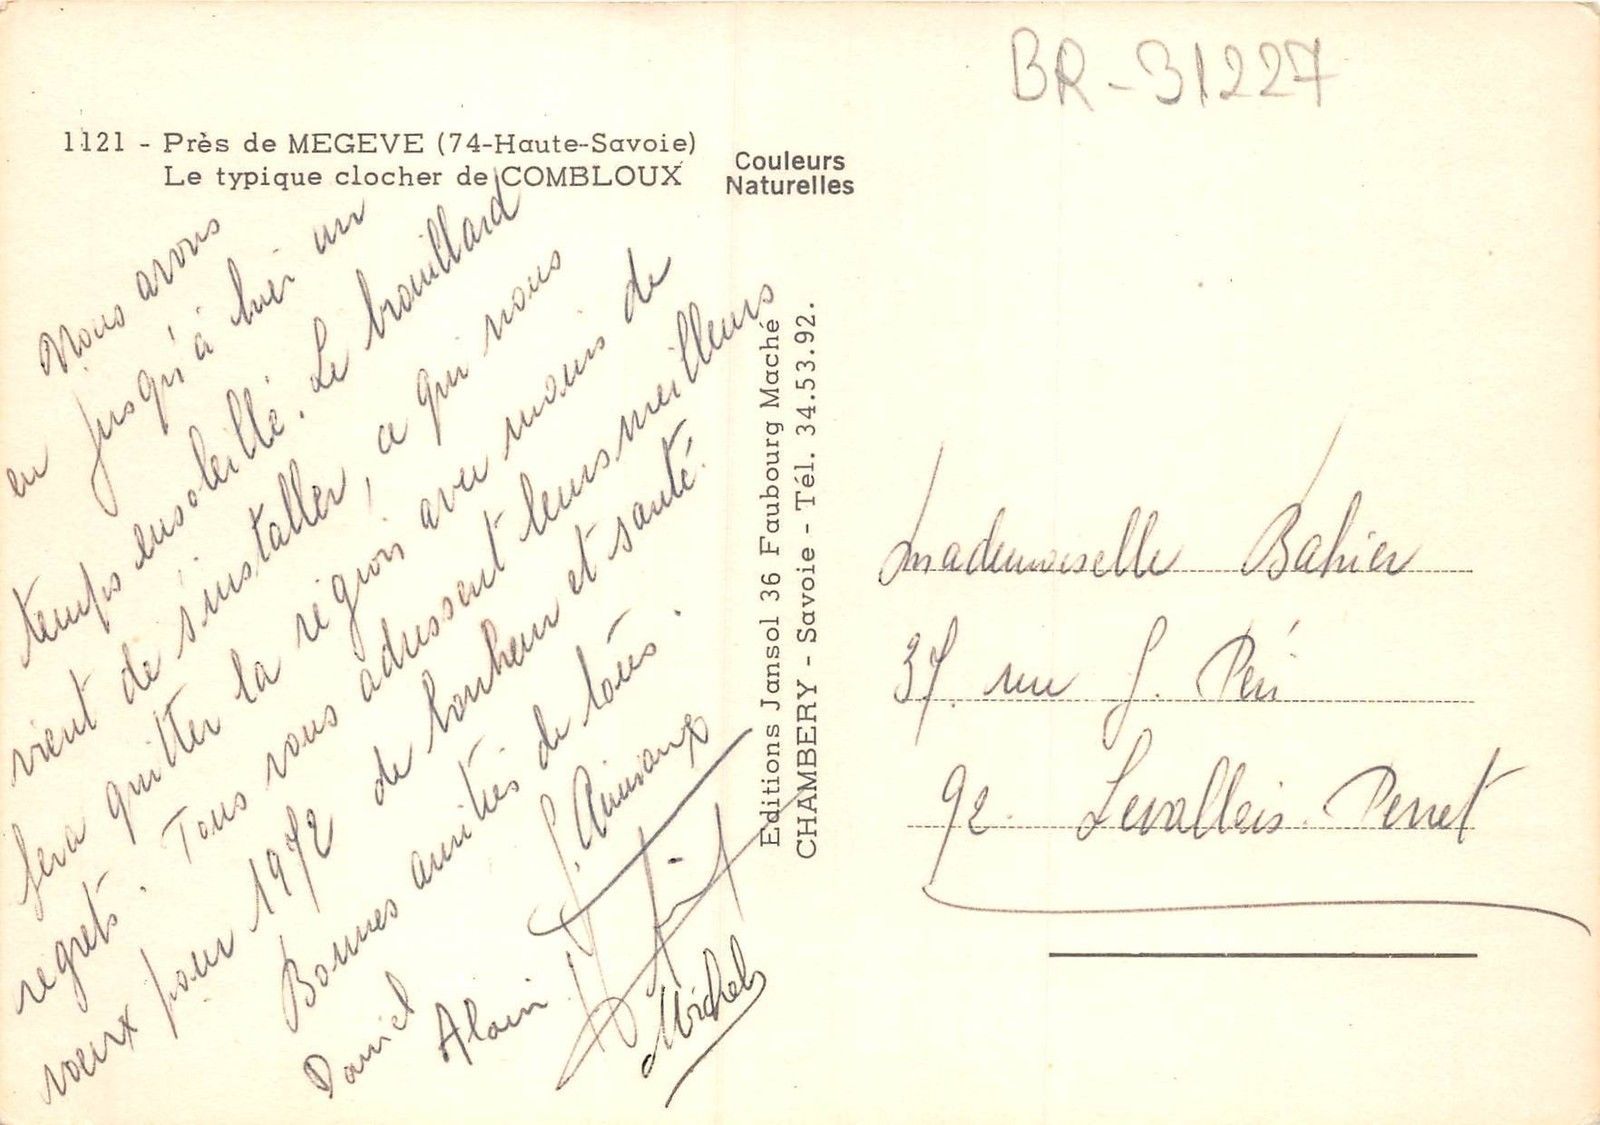 BR-31227
1121 - Près de MEGEVE (74-Haute-Savoie)
Le typique clocher de COMBLOUX
Couleurs
Naturelles
Nous avons
eu jusqu'à hier un
temps ensoleillé. Le brouillard
vient de s'installer, ce qui nous
fera quitter la région avec moins de
regrets. Tous vous adressent leurs meilleurs
voeux pour 1972 de bonheur et santé.
Bonnes amitiés de tous.
Daniel
Alain
Michel
Editions Jansol 36 Faubourg Maché
CHAMBERY - Savoie - Tél. 34.53.92.
Mademoiselle Bahier
37 rue G. Péri
92. Levallois-Perret